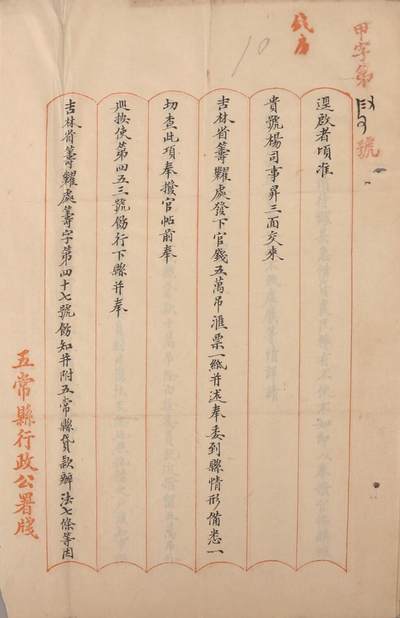 甲字第 號
逕啟者頃准
貴號楊司事昇三面交來
吉林省籌糶處發下官錢五萬吊滙票一紙并述奉委到縣情形備悉一
切查此項奉撥官帖前奉
巡按使第四五三號飭行下縣并奉
吉林省籌糶處籌字第四十七號飭知并附五常縣貸款辦法七條等因
五常縣行政公署牋
10